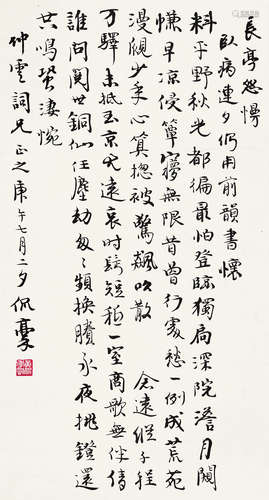 長亭怨慢
臥病連夕仍用前韻書懷
料平野秋光都徧最怕登臨獨扃深院澹月闚
㡘早涼侵簟㝱無限昔曾行處愁一例成荒苑
漫覷少年心算總被驚飆吹散 念遠縱千程
万驛未抵玉京天遠哀時鬢短秪一室商歌無伴倩
誰問閱世銅仙任塵劫匆匆頻換賸永夜挑鐙還
共鳴蛩淒惋
仲雲詞兄正之庚午七月二夕